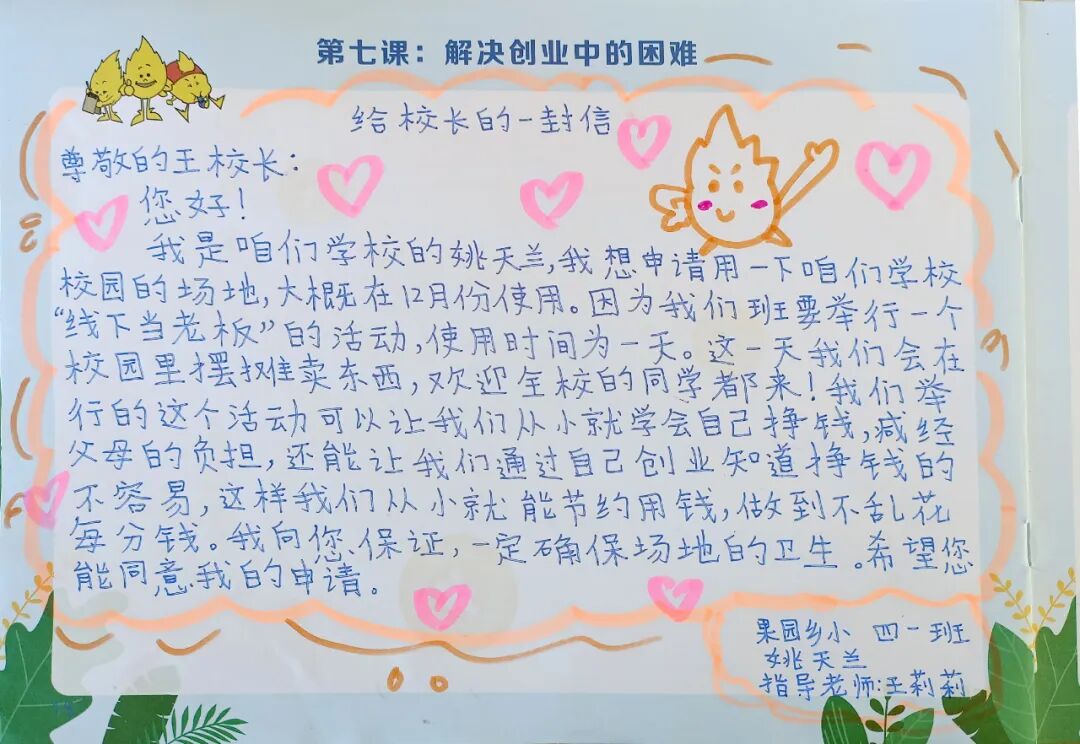 第七课：解决创业中的困难
给校长的一封信
尊敬的王校长：
您好！
我是咱们学校的姚天兰，我想申请用一下咱们学校
校园的场地，大概在12月份使用。因为我们班要举行一个
“线下当老板”的活动，使用时间为一天。这一天我们会在
校园里摆摊卖东西，欢迎全校的同学都来！我们举
行的这个活动可以让我们从小就学会自己挣钱，减轻
父母的负担，还能让我们通过自己创业知道挣钱的
不容易，这样我们从小就能节约用钱，做到不乱花
每分钱。我向您保证，一定确保场地的卫生。希望您
能同意我的申请。
果园乡小 四一班
姚天兰
指导老师：王莉莉